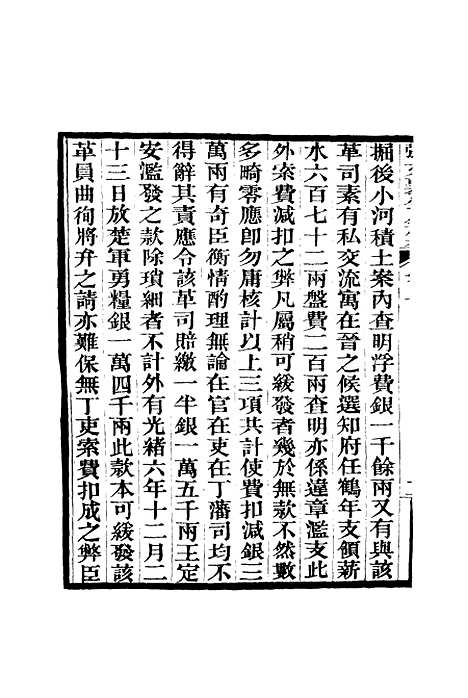 掘後小河積土案內查明浮費銀一千餘兩又有與該
革司素有私交流寓在晉之候選知府任鶴年支領薪
水六百七十二兩盤費二百兩查明亦係違章濫支此
外索費減扣之弊凡屬稍可緩發者幾於無款不然數
多畸零應卽勿庸核計以上三項共計使費扣減銀三
萬兩有奇臣衡情酌理無論在官在吏在丁藩司均不
得辭其責應令該革司賠繳一半銀一萬五千兩王定
安濫發之款除瑣細者不計外有光緒六年十二月二
十三日放楚軍勇糧銀一萬四千兩此款本可緩發該
革員曲徇將弁之請亦難保無丁吏索費扣成之弊臣